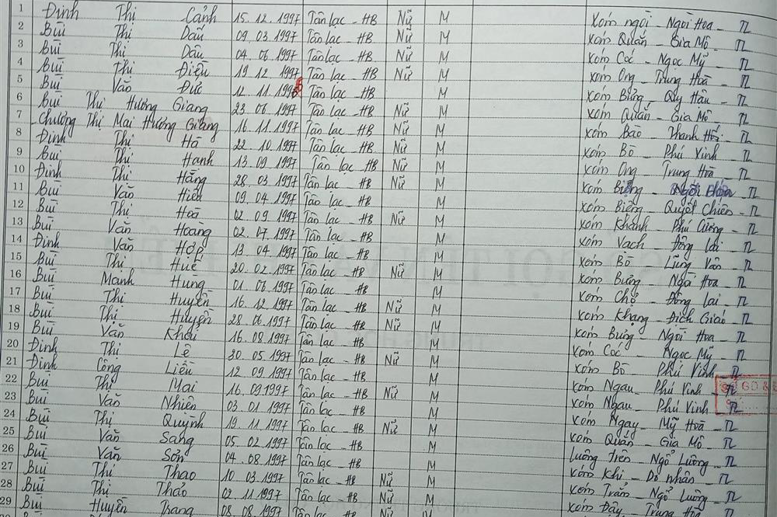 1 Đinh Thị Cảnh 15.12.1997 Tân lạc - HB Nữ M xóm ngòi - Ngòi Hoa - TL
2 Bùi Thị Dấu 09.03.1997 Tân lạc - HB Nữ M xóm Quắn - Gia Mô - TL
3 Bùi Thị Dấu 04.06.1997 Tân lạc - HB Nữ M xóm Cóc - Ngọc Mỹ - TL
4 Bùi Thị Điệu 19.12.1997 Tân lạc - HB Nữ M xóm Ong - Trung Hoà - TL
5 Bùi Văn Đức 12.11. Tân lạc - HB M xóm Bưng - Quy Hậu - TL
6 Bùi Thị Hương Giang 23.08.1997 Tân lạc - HB Nữ M xóm Quắn - Gia Mô - TL
7 Chương Thị Mai Hương Giang 16.11.1997 Tân lạc - HB Nữ M xóm Bào - Thanh Hối - TL
8 Đinh Thị Hà 22.10.1997 Tân lạc - HB Nữ M xóm Bò - Phú Vinh - TL
9 Bùi Thị Hạnh 13.09.1997 Tân lạc - HB Nữ M xóm Ong - Trung Hoà - TL
10 Đinh Thị Hằng 28.03.1997 Tân lạc - HB Nữ M xóm
11 Bùi Văn Hiếu 09.04.1997 Tân lạc - HB M xóm Biêng - Quyết Chiến - TL
12 Bùi Thị Hoà 02.09.1997 Tân lạc - HB Nữ M xóm Khánh - Phú Cường - TL
13 Bùi Văn Hoàng 02.07.1997 Tân lạc - HB M xóm Vạch - Đông lai - TL
14 Đinh Văn Hợp 13.04.1997 Tân lạc - HB M xóm Bò - Lũng Vân - TL
15 Bùi Thị Huế 20.02.1997 Tân lạc - HB Nữ M xóm Bưng - Hoa - TL
16 Bùi Mạnh Hùng 01.06.1997 Tân lạc - HB M xóm Chợ - Đông lai - TL
17 Bùi Thị Huyền 16.12.1997 Tân lạc - HB Nữ M xóm Khang - Địch Giáo - TL
18 Bùi Thị Huyền 28.06.1997 Tân lạc - HB Nữ M xóm Bưng - Ngòi Hoa - TL
19 Bùi Văn Khải 16.08.1997 Tân lạc - HB M xóm Cóc - Ngọc Mỹ - TL
20 Đinh Thị Lê 30.05.1997 Tân lạc - HB Nữ M xóm Bò - Phú Vinh - TL
21 Đinh Công Liều 12.09.1997 Tân lạc - HB M xóm Ngau - Phú Vinh - TL
22 Bùi Thị Mai 16.09.1997 Tân lạc - HB Nữ M xóm Ngau - Phú Vinh - TL
23 Bùi Văn Nhiên 03.01.1997 Tân lạc - HB M xóm Ngay - Mỹ Hoà - TL
24 Bùi Thị Quỳnh 19.11.1997 Tân lạc - HB Nữ M xóm Quắn - Gia Mô - TL
25 Bùi Văn Sang 05.02.1997 Tân lạc - HB M luông trên - Ngổ Luông - TL
26 Bùi Văn Sơn 04.08.1997 Tân lạc - HB M xóm Khi - Do nhân - TL
27 Bùi Thị Thao 10.03.1997 Tân lạc - HB Nữ M xóm Trẳm - Ngổ Luông - TL
28 Bùi Thị Thảo 02.11.1997 Tân lạc - HB Nữ M xóm Đây - Trung Hoà - TL
29 Bùi Huyền Trang 08.08.1997 Tân lạc - HB Nữ M